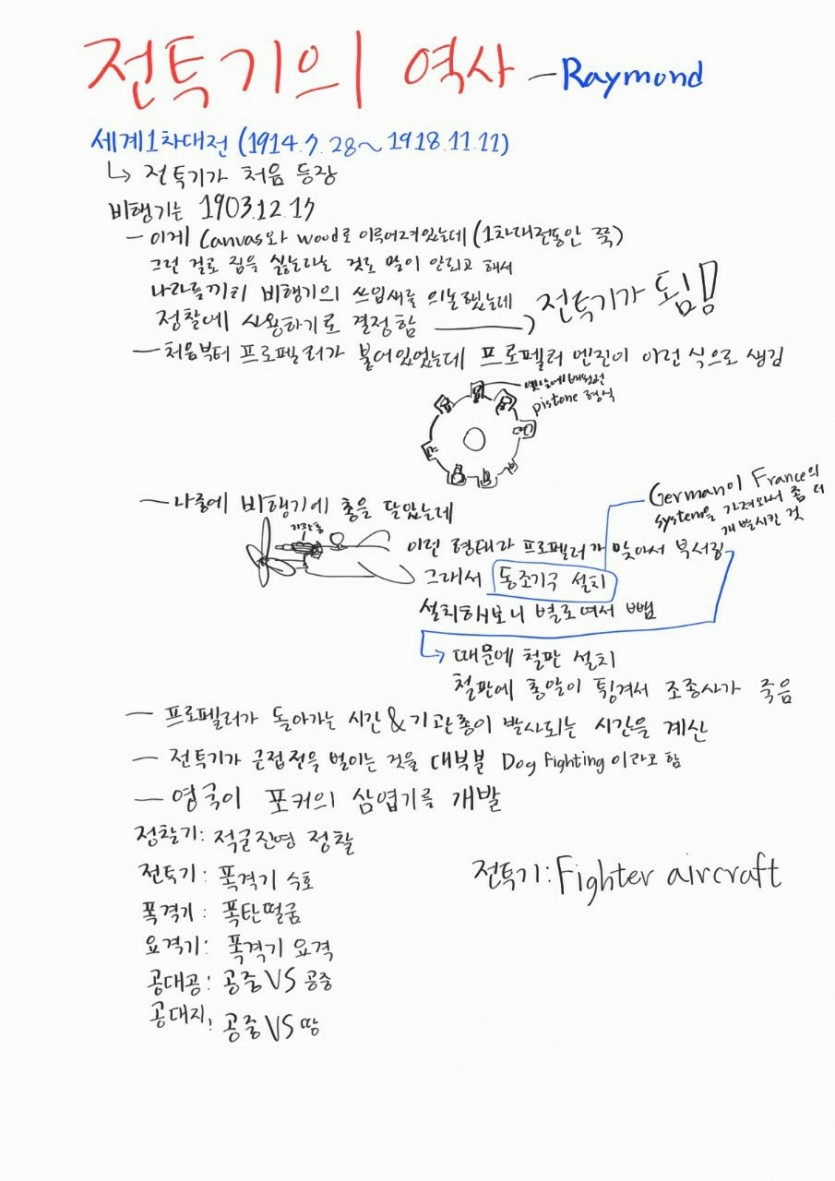 전투기의 역사 - Raymond
세계1차대전 (1914.7.28~1918.11.11)
↳ 전투기가 처음 등장
비행기는 1903.12.17
- 이게 Canvas와 wood로 이루어져있는데 (1차대전동안 쭉)
그런 걸로 짐을 싫는라는 것도 말이 안되고 해서
나라들끼리 비행기의 쓰임새를 의논했는데
정찰에 사용하기로 결정함 → 전투기가 됨!!
- 처음부터 프로펠러가 붙어있었는데 프로펠러 엔진이 이런 식으로 생김
pistone 형식
- 나중에 비행기에 총을 달았는데
기관총
German이 France의
system을 가져와서 좀 더
개발시킨 것
이런 형태라 프로펠러가 맞아서 부서짐
그래서 동조기구 설치
설치해보니 별로여서 뺍
↳ 때문에 철판 설치
철판에 총알이 튕겨서 조종사가 죽음
- 프로펠러가 돌아가는 시간 & 기관총이 발사되는 시간을 계산
- 전투기가 근접전을 벌이는 것을 대부분 Dog Fighting 이라고 함
- 영국이 포커의 삼엽기를 개발
정찰기: 적군진영 정찰
전투기: 폭격기 수호
전투기: Fighter aircraft
폭격기: 폭탄떨굼
요격기: 폭격기 요격
공대공: 공중 VS 공중
공대지: 공중 VS 땅